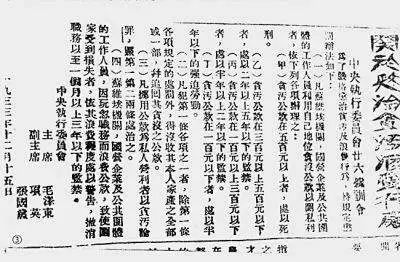 關於懲治貪污浪費行為
中央執行委員會廿六號訓令
為了嚴格懲治貪污及浪費行為，特規定懲
罰辦法如下：
（一）凡蘇維埃機關，國營企業及公共團
體的工作人員利用自己地位貪沒公款以圖私利
者，依下列各項辦理之：
（甲）貪污公款在五百元以上者，處以死
刑。
（乙）貪污公款在三百元以上五百元以下
者，處以二年以上五年以下的監禁。
（丙）貪污公款在一百元以上三百元以下
者，處以半年以上二年以下的監禁。
（丁）貪污公款在一百元以下者，處以半
年以下的強迫勞動。
（二）凡犯第一條各項之一者，除第一條
各項規定的處罰外，得沒收其本人家產之全部
或一部，并追回其貪沒之公款。
（三）凡挪用公款為私人營利者以貪污論
罪，照第一第二兩條處治之。
（四）蘇維埃機關，國營企業及公共團體
的工作人員，因玩忽職務而浪費公款，致使國
家受到損失者，依其浪費程度處以警告，撤消
職務以至一個月以上三年以下的監禁。
中央執行委員會
主席 毛澤東
副主席 項英
張國燾
一九三三年十二月十五日
③